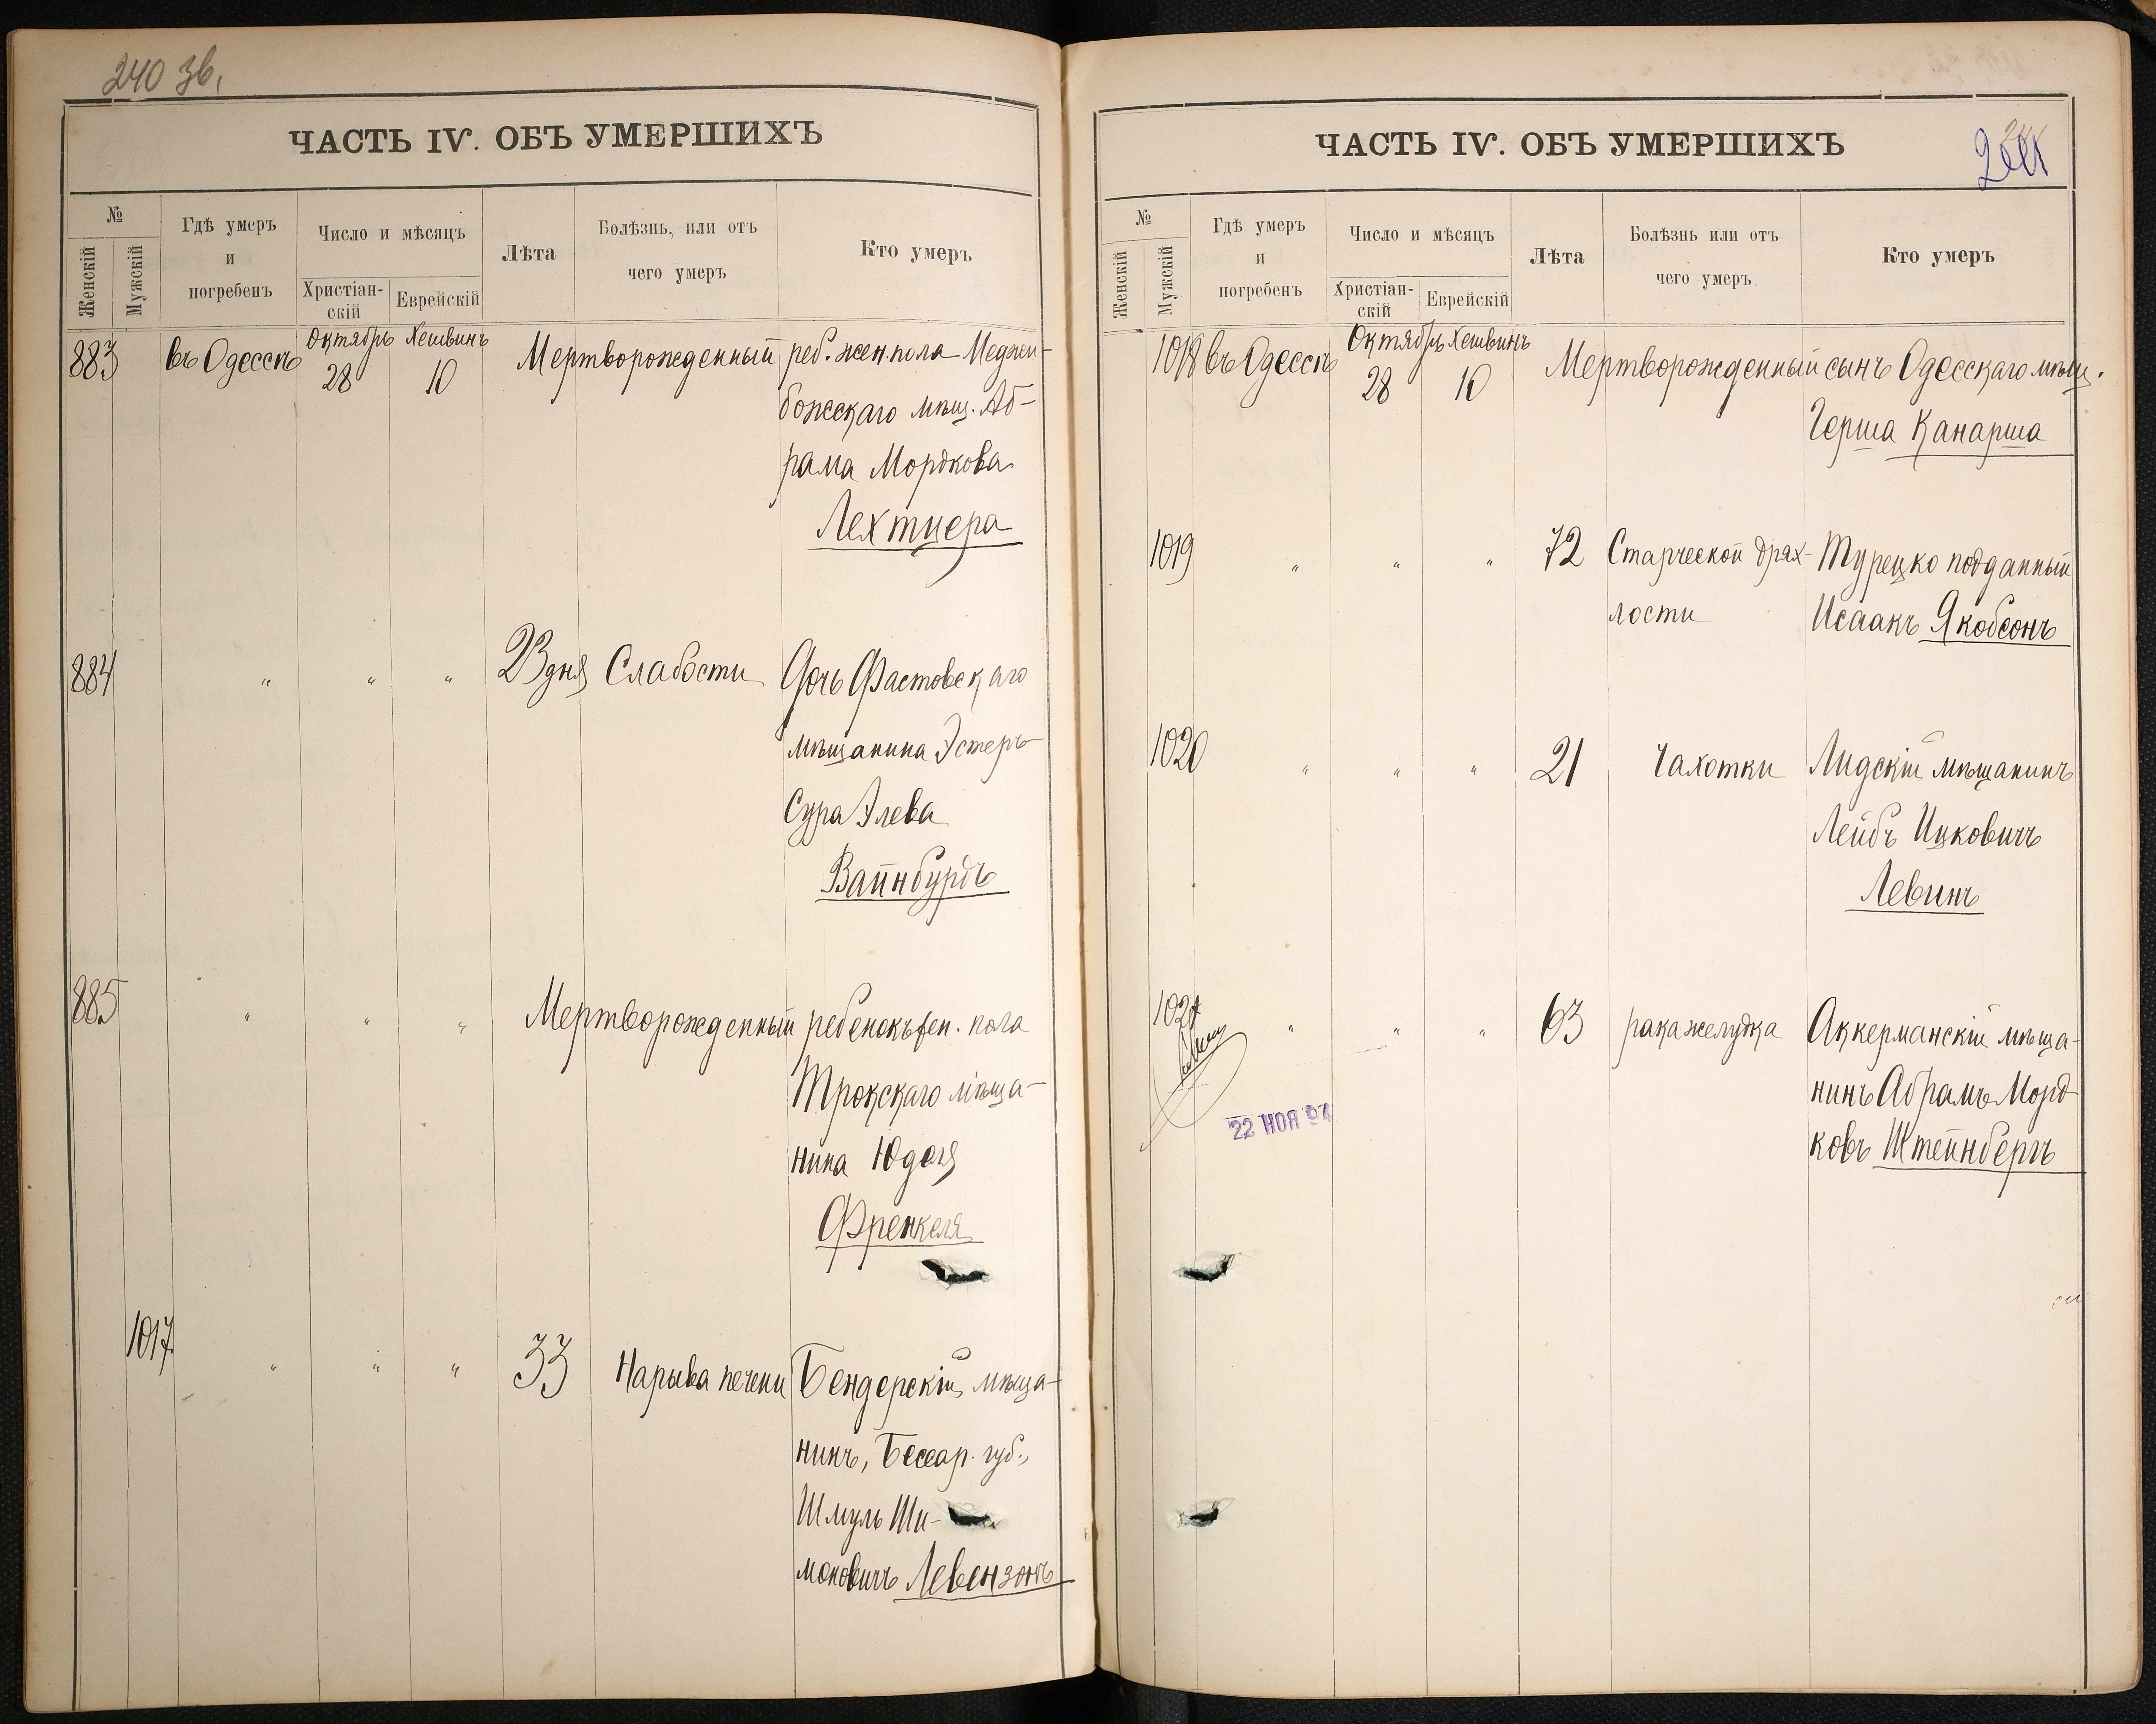 240 зв.
ЧАСТЬ IV. ОБЪ УМЕРШИХЪ
№
Женскій
Мужскій
Гдѣ умеръ
и
погребенъ
Число и мѣсяцъ
Христіан-
скій
Еврейскій
Лѣта
Болѣзнь, или отъ
чего умеръ
Кто умеръ
Октябрь Хешвинъ
883 въ Одессѣ 28 10 Мертворожденный реб. жен. пола Меджи-
божскаго мѣщ. Аб-
рама Мордкова
Лехтцера
884 " " " 23 дня Слабости Дочь Фастовскаго
мѣщанина Эстеръ
Сура Элева
Вайнбурдъ
885 " " " Мертворожденный ребенокъ жен. пола
Трокскаго мѣща-
нина Юделя
Френкеля
1017 " " " 33 Нарыва печени Бендерскій мѣща-
нинъ, Бессар. губ.,
Шмуль Ши-
моновичъ Левензонъ
ЧАСТЬ IV. ОБЪ УМЕРШИХЪ
№
Женскій
Мужскій
Гдѣ умеръ
и
погребенъ
Число и мѣсяцъ
Христіан-
скій
Еврейскій
Лѣта
Болѣзнь или отъ
чего умеръ
Кто умеръ
Октябрь Хешвинъ
1018 въ Одессѣ 28 10 Мертворожденный сынъ Одесскаго мѣщ.
Герша Канарша
1019 " " " 72 Старческой дрях- Турецко подданный
лости Исаакъ Якобсонъ
1020 " " " 21 Чахотки Лидскій мѣщанинъ
Лейбъ Ицковичъ
Левинъ
1021 " " " 63 рака желудка Аккерманскій мѣща-
нинъ Абрамъ Морд-
ковъ Штейнбергъ
22 НОЯ 94